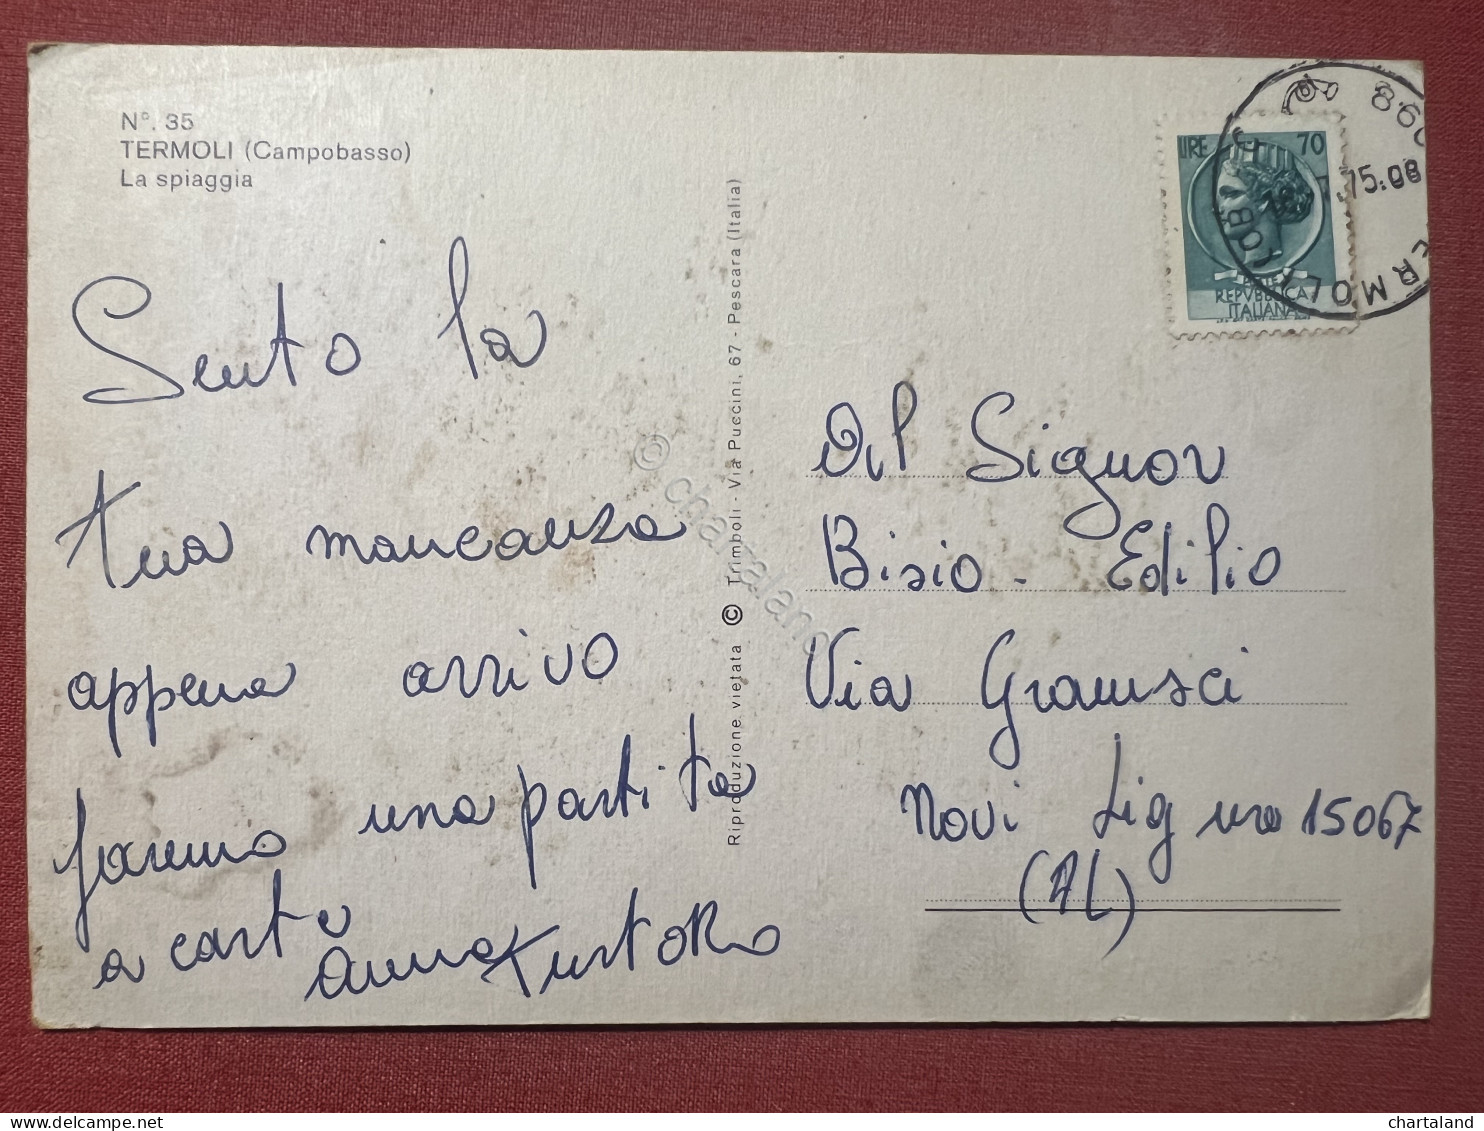 N°. 35
TERMOLI (Campobasso)
La spiaggia
Sento la
tua mancanza
appena arrivo
faremo una partita
a carte
Anna
Riproduzione vietata © Trimboli - Via Puccini, 67 - Pescara (Italia)
LIRE 70
REPVBBLICA
ITALIANA
TERMOLI
Al Signor
Bisio - Edilio
Via Gramsci
Novi Ligure 15067
(AL)
© chartaland
chartaland
delcampe.net